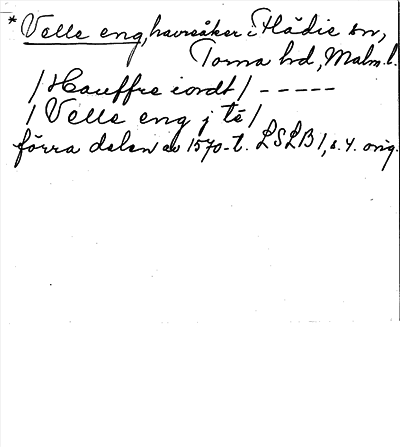 * Velle eng, havreåker i Flädie sn,
Torna hd, Malm. l.
/ Hauffre iordt / - - - - -
/ Velle eng j té /
förra delen av 1570-t. LSLB 1, s. 4. orig.